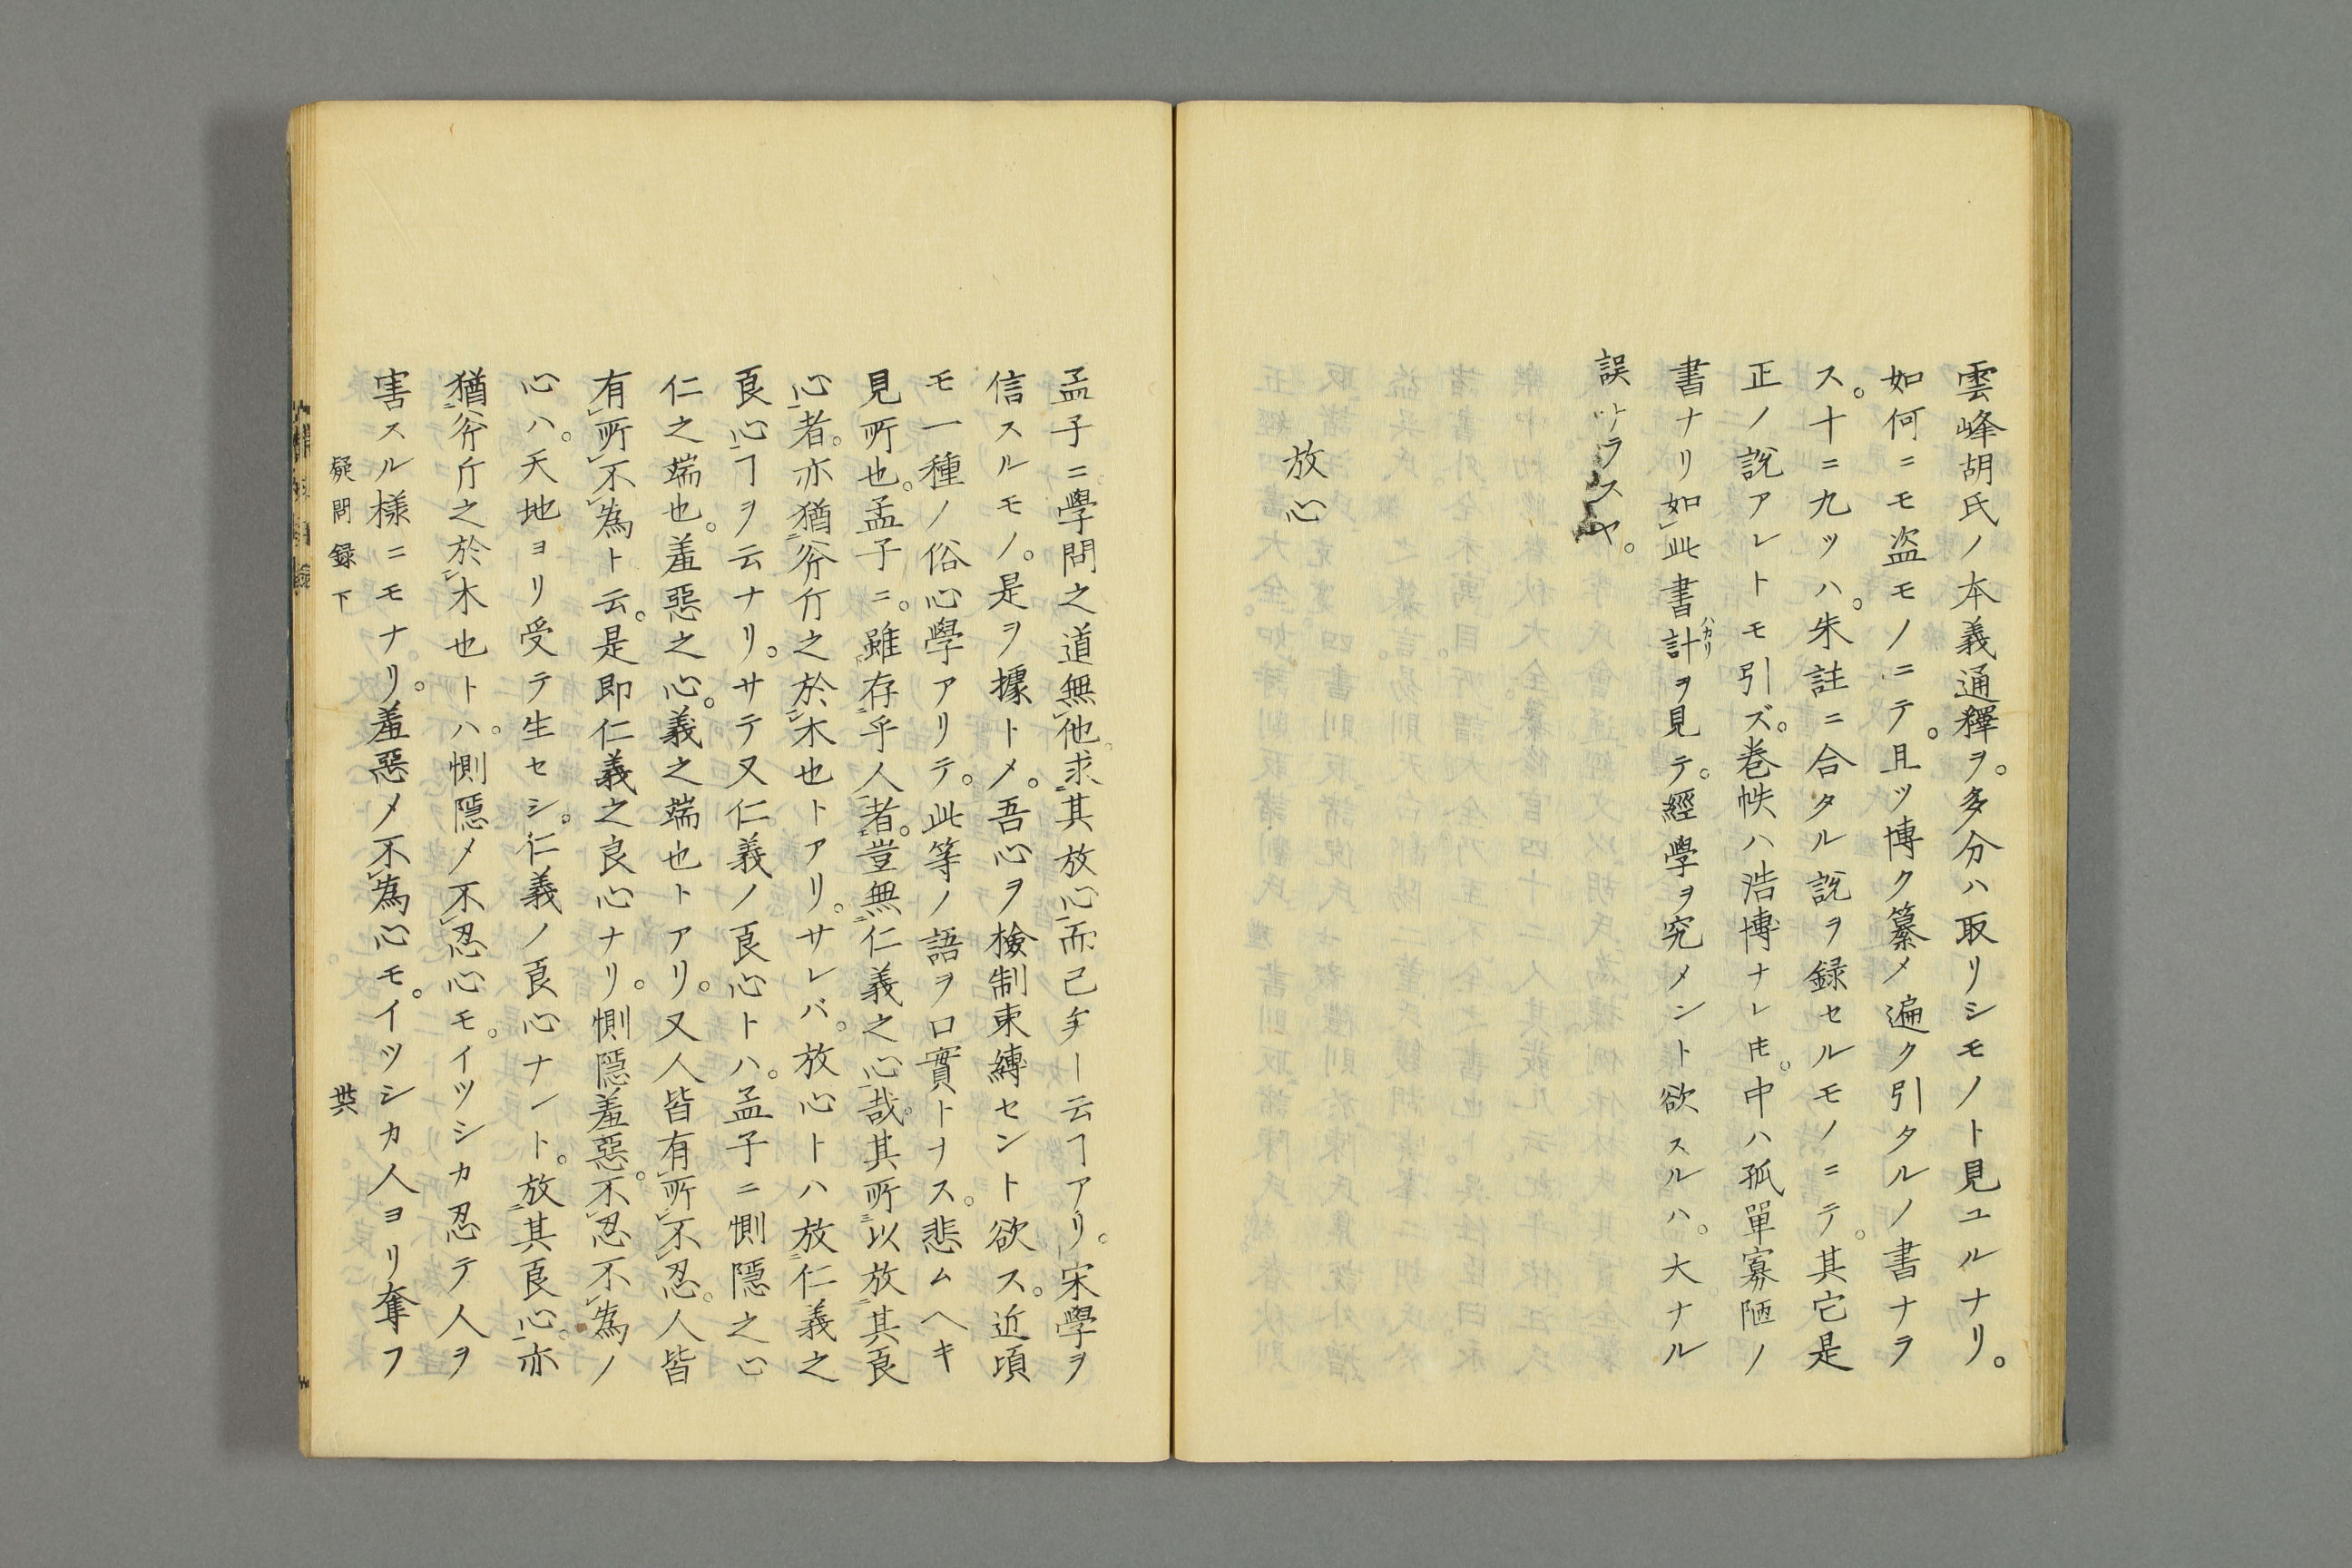 雲峰胡氏ノ本義通釋ヲ。多分ハ取リシモノト見ユルナリ。
如何ニモ盗モノニテ。且ツ博ク纂メ遍ク引タルノ書ナラ
ス。十ニ九ツハ。朱註ニ合タル說ヲ録セルモノニテ。其它是
正ノ說アレトモ引ズ。巻帙ハ浩博ナレ𪜈。中ハ孤單寡陋ノ
書ナリ如此書計ヲ見テ。經學ヲ究メント欲スルハ。大ナル
ハカリ
誤ナラスヤ。
放心
孟子ニ。學問之道無他。求其放心而已矣ト云ヿアリ。宋學ヲ
信スルモノ。是ヲ據トメ。吾心ヲ檢制束縛セント欲ス。近頃
モ一種ノ俗心學アリテ。此等ノ語ヲ口實トヲス。悲ムヘキ
見所也。孟子ニ。雖存乎人者。豈無仁義之心哉。其所以放其良
心者。亦猶斧斤之於木也トアリ。サレバ。放心トハ放仁義之
良心ヿヲ云ナリ。サテ又仁義ノ良心トハ。孟子ニ惻隱之心
仁之端也。羞惡之心。義之端也トアリ。又人皆有所不忍。人皆
有所不為ト云。是即仁義之良心ナリ。惻隱羞惡。不忍不為ノ
心ハ。天地ヨリ受テ生セシ。仁義ノ良心ナント。放其良心。亦
猶斧斤之於木也トハ。惻隱メノ不忍心モ。イツシカ忍テ人ヲ
害スル様ニモナリ。羞惡メノ不為心モ。イツシカ人ヨリ奪フ
疑問録下